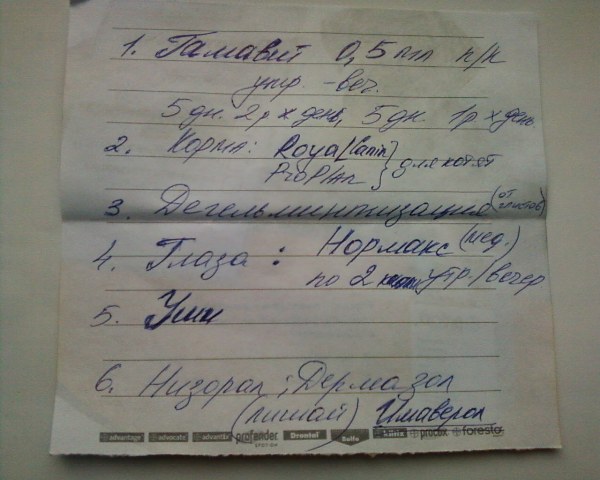 1. Гамавит 0,5 мл п/к
утр. - веч.
5 дн. 2р х день, 5 дн. 1р х день.
2. Корма: Royal Canin
ProPlan } для котят
3. Дегельминтизация (от глистов)
4. Глаза: Нормакс (мед.)
по 2 утр./вечер
5. Уши
6. Низорал; Дермазол
(лишай) Имаверол
advantage advocate advantix profender Drontal Bolfo foresto